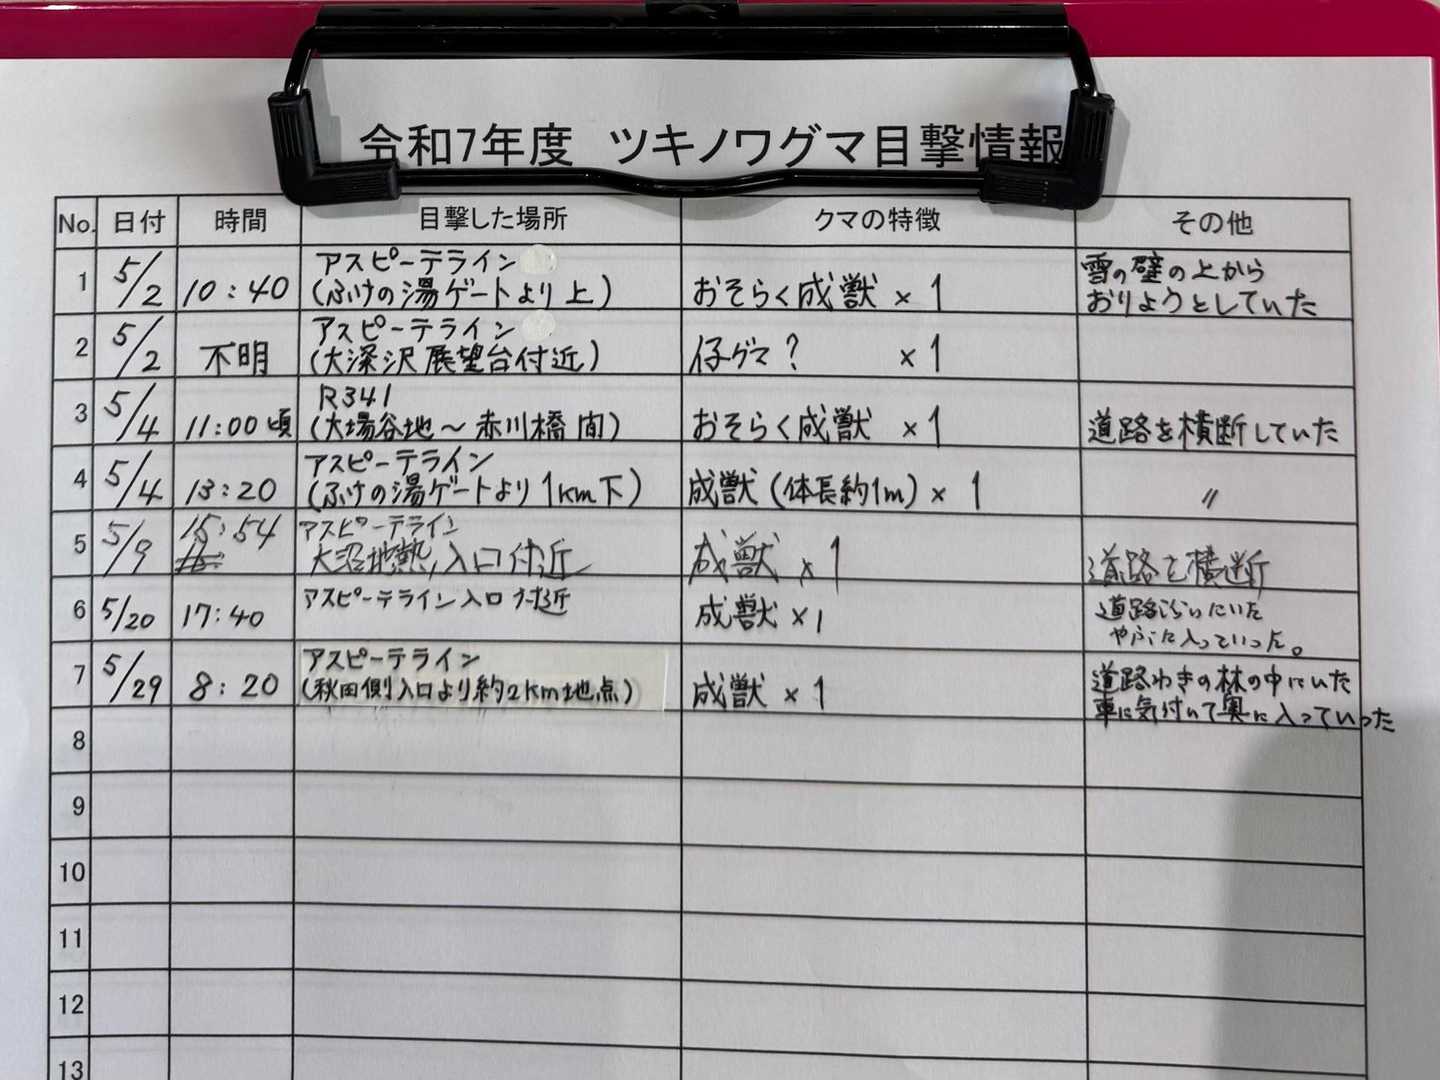 令和7年度 ツキノワグマ目撃情報
No. 日付 時間 目撃した場所 クマの特徴 その他
1 5/2 10:40 アスピーテライン (ふけの湯ゲートより上) おそらく成獣 × 1 雪の壁の上から おりようとしていた
2 5/2 不明 アスピーテライン (大深沢展望台付近) 仔グマ? × 1
3 5/4 11:00頃 R341 (大場谷地~赤川橋間) おそらく成獣 × 1 道路を横断していた
4 5/4 13:20 アスピーテライン (ふけの湯ゲートより1km下) 成獣(体長約1m) × 1 〃
5 5/9 15:54 アスピーテライン 大沼地熱,入口付近 成獣 × 1 道路を横断
6 5/20 17:40 アスピーテライン入口付近 成獣 × 1 道路ぞいにいた やぶに入っていった。
7 5/29 8:20 アスピーテライン (秋田側入口より約2km地点) 成獣 × 1 道路わきの林の中にいた 車に気付いて奥に入っていった
8
9
10
11
12
13